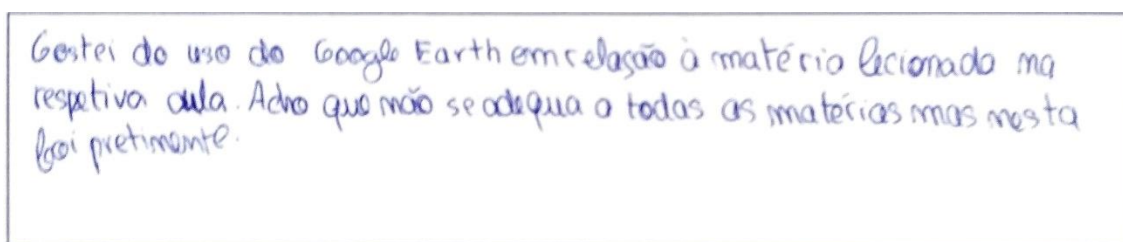 Gostei do uso do Google Earth em relação à matéria lecionada na
respetiva aula. Acho que não se adequa a todas as matérias mas nesta
foi pretimente.